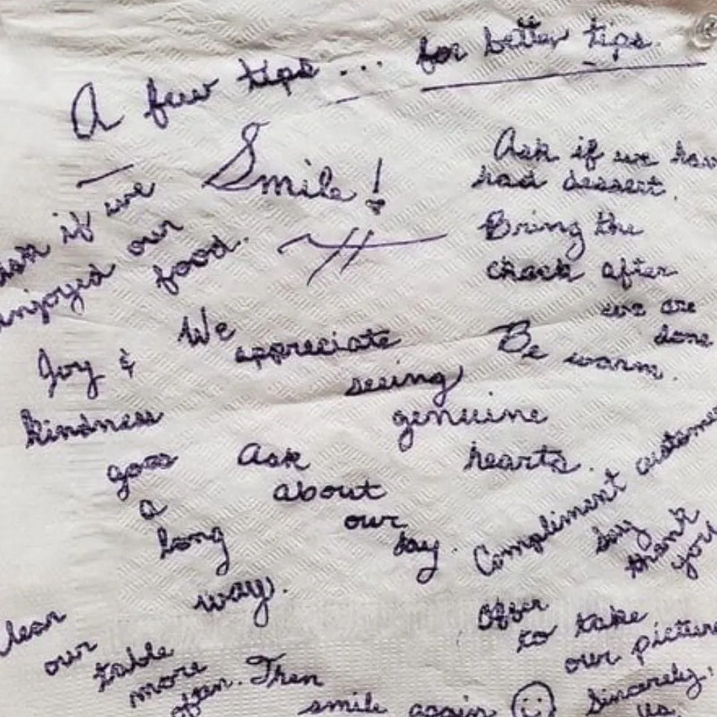 A few tips... for better tips.
Smile!
Ask if we have
had dessert.
Ask if we
enjoyed our
food.
Bring the
check after
we are
done
We
appreciate
seeing
genuine
hearts.
Be warm.
Joy &
kindness
goes
a
long
way.
Ask
about
our
day.
Compliment customers
Say
thank
you
Offer
to take
our picture
Clear
our
table
more
often. Then
smile again
Sincerely,
Us